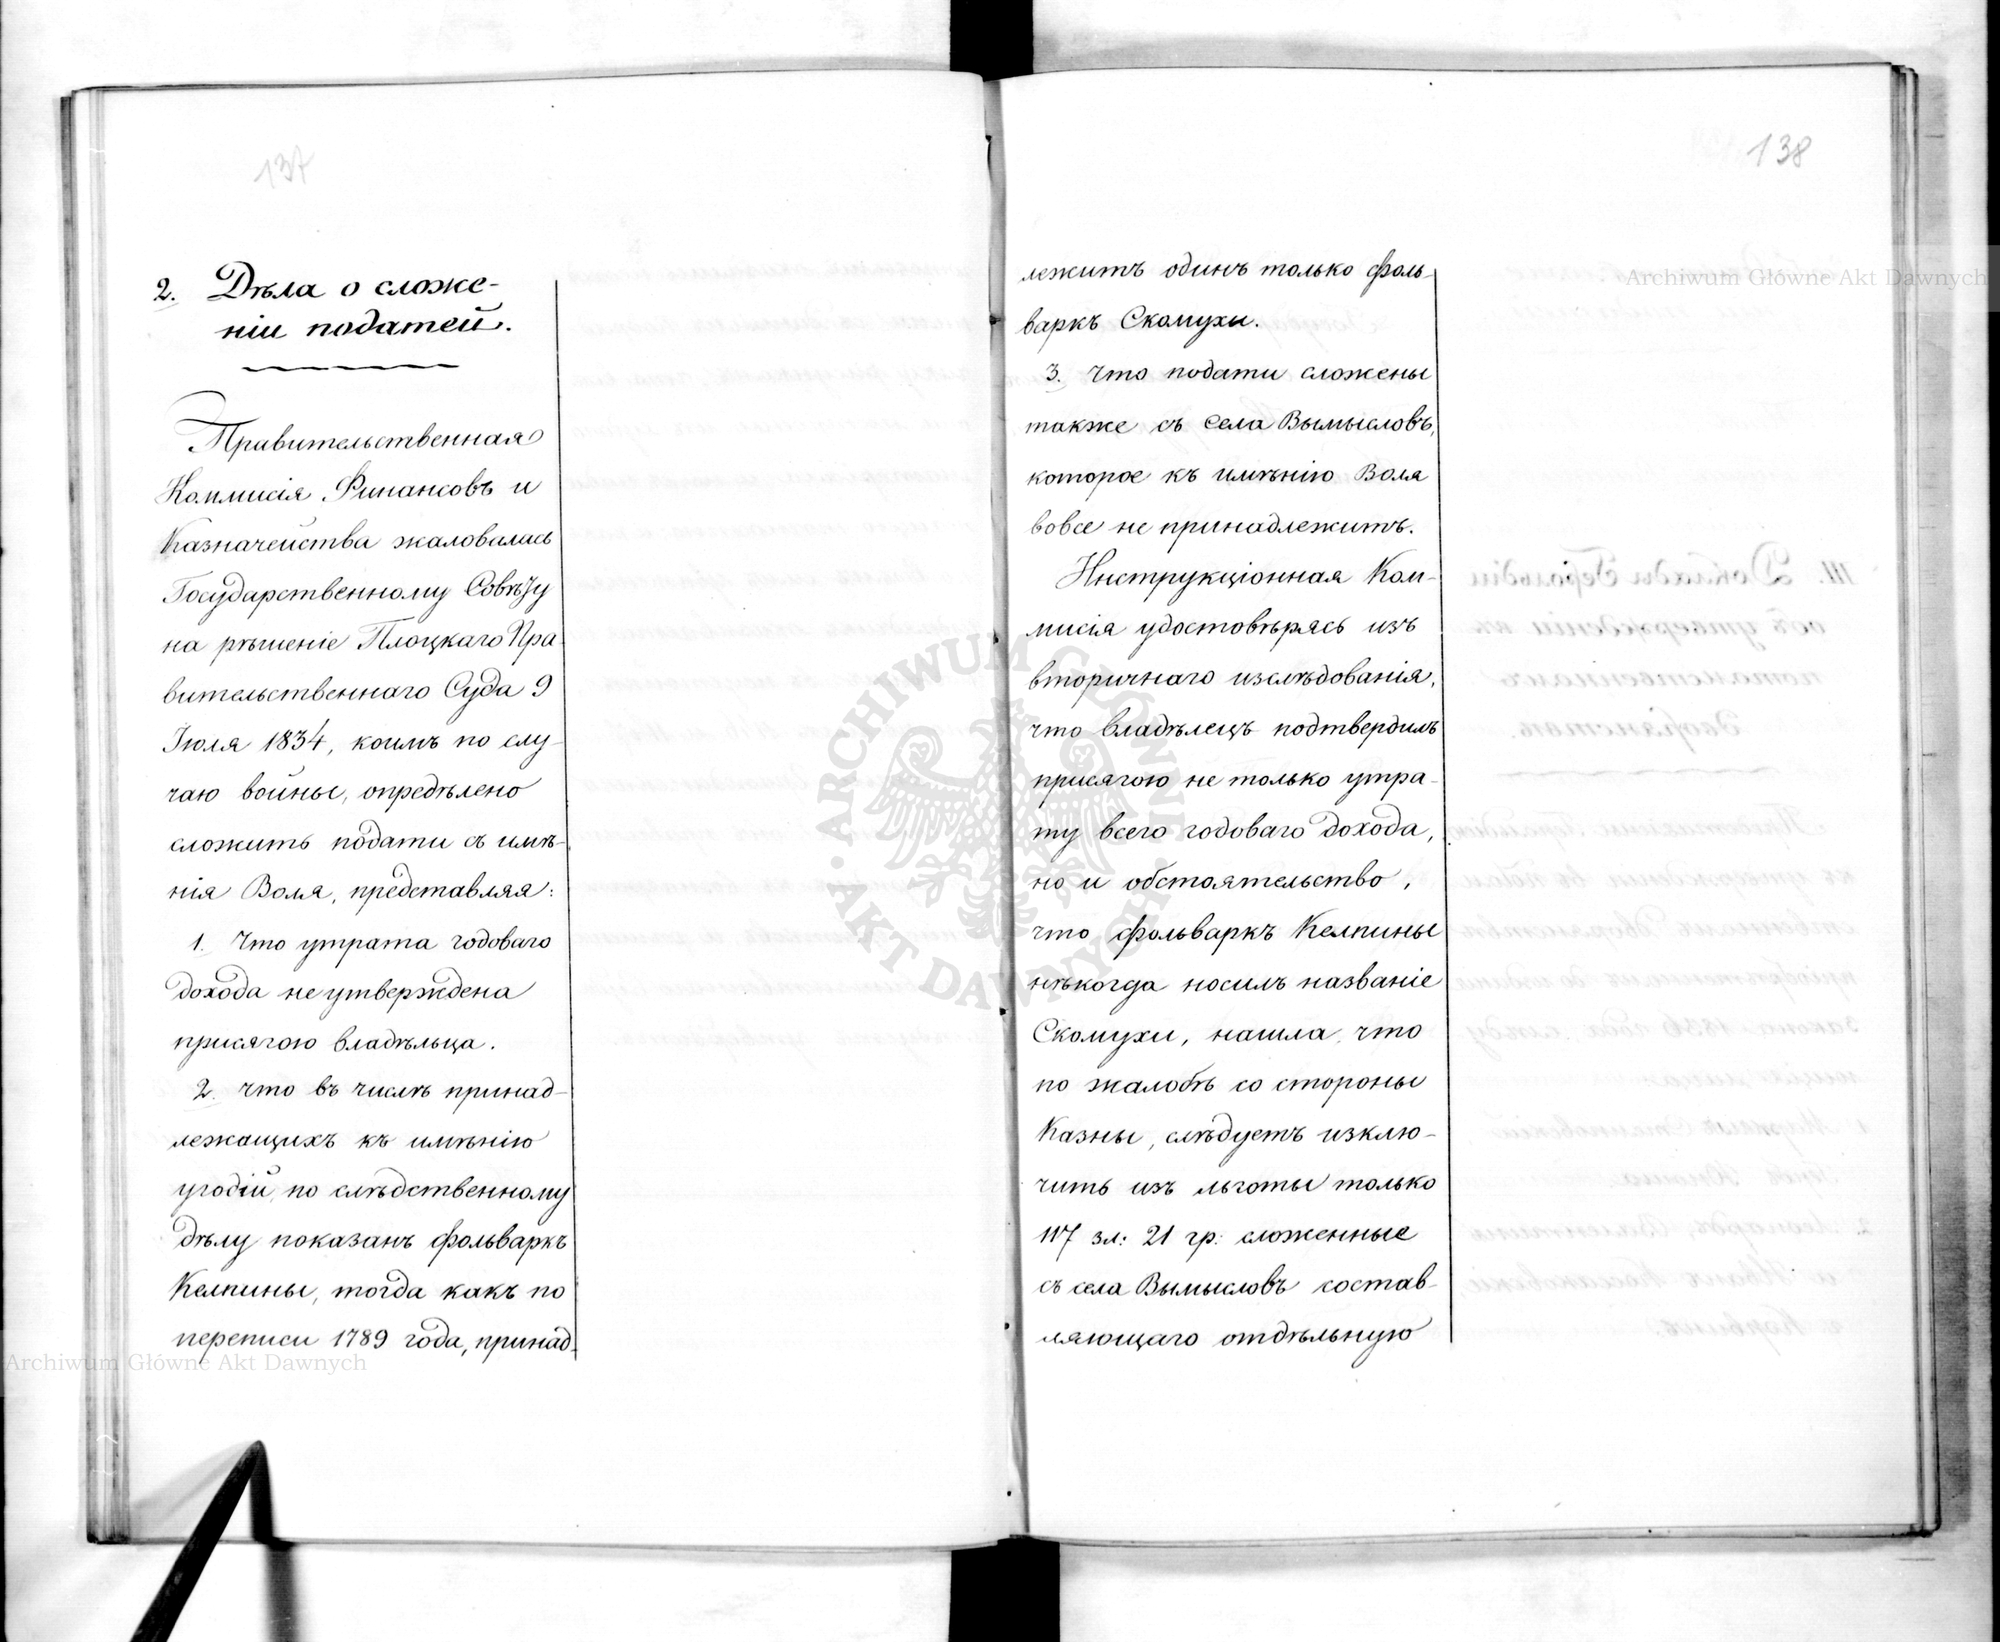 137
2. Дѣла о сложе-
ніи податей.
Правительственная
Коммисія Финансовъ и
Казначейства жаловалась
Государственному Совѣту
на рѣшеніе Плоцкаго Пра-
вительственнаго Суда 9
Іюля 1834, коимъ по слу-
чаю войны, опредѣлено
сложить подати съ имѣ-
нія Воля, представляя:
1. Что утрата годоваго
дохода не утверждена
присягою владѣльца.
2. что въ числѣ принад-
лежащихъ къ имѣнію
угодій, по слѣдственному
дѣлу показанъ фольваркъ
Келпины, тогда какъ по
переписи 1789 года, принад-
138
лежитъ одинъ только фоль-
варкъ Скомухи.
3. что подати сложены
также съ села Вымысловъ,
которое къ имѣнію Воля
вовсе не принадлежитъ.
Инструкціонная Ком-
мисія удостовѣрясь изъ
вторичнаго изслѣдованія,
что владѣлецъ подтвердилъ
присягою не только утра-
ту всего годоваго дохода,
но и обстоятельство,
что фольваркъ Келпины
нѣкогда носилъ названіе
Скомухи, нашла, что
по жалобѣ со стороны
Казны, слѣдуетъ изклю-
чить изъ льготы только
117 зл: 21 гр: сложенные
съ села Вымысловъ состав-
ляющаго отдѣльную
Archiwum Główne Akt Dawnych
Archiwum Główne Akt Dawnych
ARCHIWUM GŁÓWNE AKT DAWNYCH